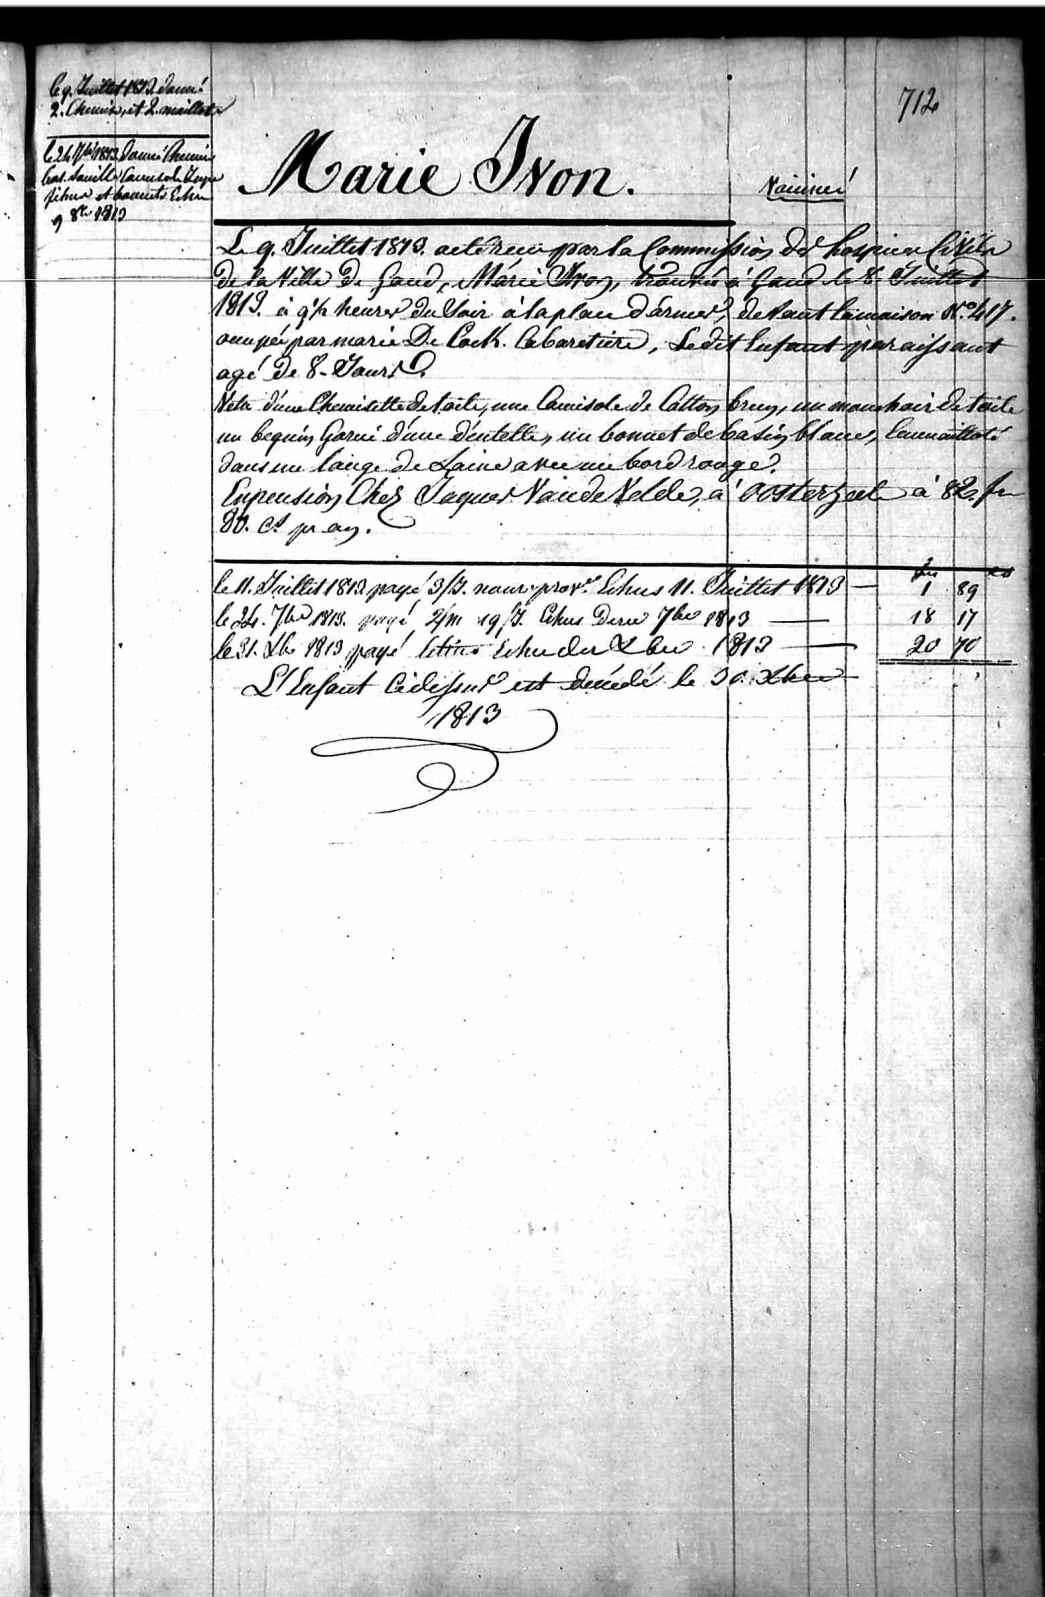 712
le 9. Juillet 1813 donné
2. Chemises et 2. maillots
le 24 7bre 1813 Donné Chemise
bas. Camisole
fichus et bonnets Echu
9 8bre 1813
Marie Ivon.
Vaicciné
Le 9. Juillet 1813. a eté recu par la Commission des hospices Civils
de la Ville de Gand, Marie Ivon, trouvée à Gand le 8. Juillet
1813. à 9½ heures du Soir à la place d'armes, devant la maison No. 417.
occupée par marie De Cock. Cabaretière, Ledit Enfant paraissant
agé de 8. Jours.
Vetu d'une Chemisette de toile, une Camisole de Cotton brun, un mouchoir de toile
un beguin Garni d'une dentelle, un bonnet de basin blanc, Enmaillotté
dans un lange de Laine avec un bord rouge.
En pension Chez Jaques Van de Velde, à Oosterzeel à 82. fr
80. Ct. pr. an.
le 11. Juillet 1813 payé 3/J. nour. provre. Echus 11. Juillet 1813 — 1 89
le 24. 7bre 1813. payé 2/m 19/J. Echus Dernr 7bre 1813 — 18 17
le 31. Xbre 1813 payé letrims Echu der Xbre 1813 — 20 70
L'Enfant Cidessus est decédé le 30. Xbre
1813